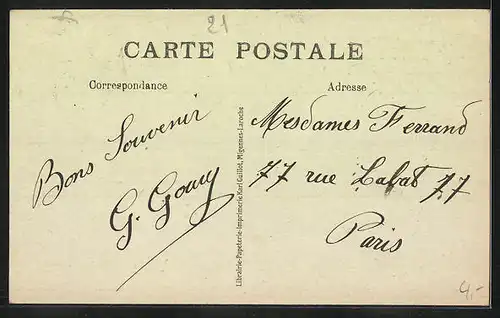 21
CARTE POSTALE
Correspondance
Adresse
Bons Souvenir
G. Goury
Librairie-Papeterie-Imprimerie Karl Guillot, Migennes-Laroche
Mesdames Ferrand
77 rue Labat 77
Paris
4,-